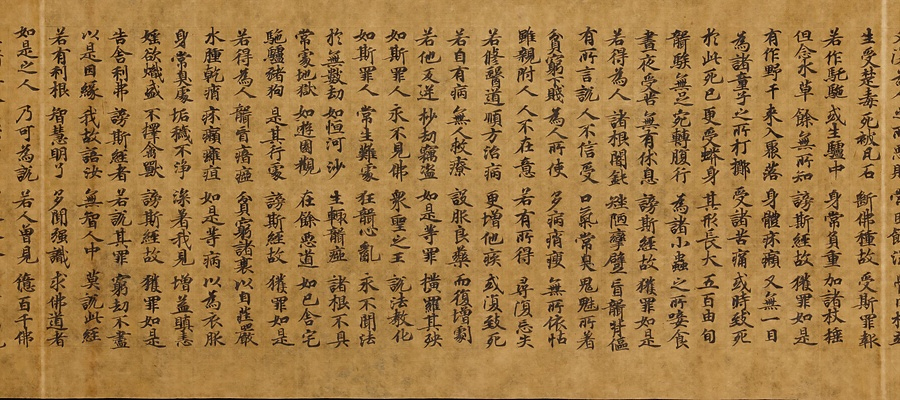 生受楚毒 死被瓦石 斷佛種故 受斯罪報
若作馲駝 或生驢中 身常負重 加諸杖捶
但念水草 餘無所知 謗斯經故 獲罪如是
有作野干 來入聚落 身體疥癩 又無一目
為諸童子 之所打擲 受諸苦痛 或時致死
於此死已 更受蟒身 其形長大 五百由旬
聾騃無足 宛轉腹行 為諸小蟲 之所唼食
晝夜受苦 無有休息 謗斯經故 獲罪如是
若得為人 諸根闇鈍 矬陋攣躄 盲聾背傴
有所言說 人不信受 口氣常臭 鬼魅所著
貧窮下賤 為人所使 多病痟瘦 無所依怙
雖親附人 人不在意 若有所得 尋復忘失
若修醫道 順方治病 更增他疾 或復致死
若自有病 無人救療 設服良藥 而復增劇
若他反逆 抄劫竊盜 如是等罪 橫羅其殃
如斯罪人 永不見佛 眾聖之王 說法教化
如斯罪人 常生難處 狂聾心亂 永不聞法
於無數劫 如恒河沙 生輒聾瘂 諸根不具
常處地獄 如遊園觀 在餘惡道 如己舍宅
駝驢猪狗 是其行處 謗斯經故 獲罪如是
若得為人 聾盲瘖瘂 貧窮諸衰 以自莊嚴
水腫乾痟 疥癩癰疽 如是等病 以為衣服
身常臭處 垢穢不淨 深著我見 增益瞋恚
婬欲熾盛 不擇禽獸 謗斯經故 獲罪如是
告舍利弗 謗斯經者 若說其罪 窮劫不盡
以是因緣 我故語汝 無智人中 莫說此經
若有利根 智慧明了 多聞強識 求佛道者
如是之人 乃可為說 若人曾見 億百千佛